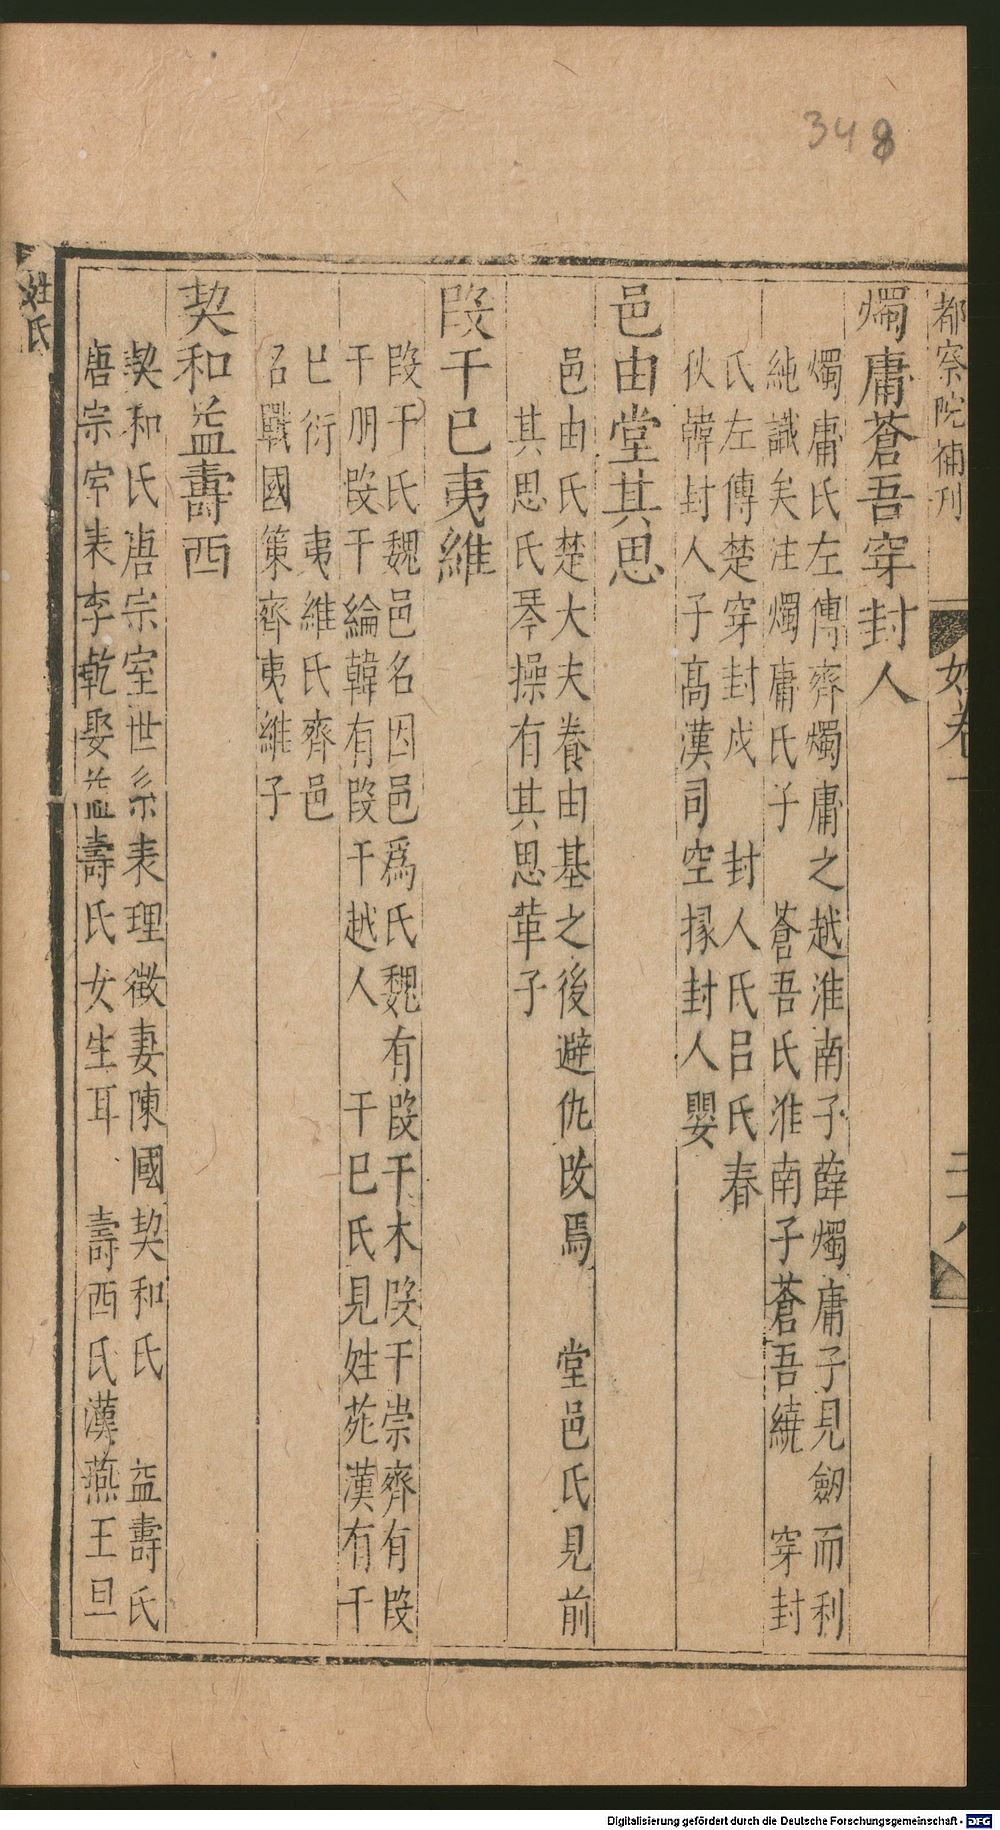 348
都察院補刊
姓卷一
二十八
燭庸蒼吾穿封人
燭庸氏左傳齊燭庸之越淮南子薛燭庸子見劒而利
純識矣注燭庸氏子　蒼吾氏淮南子蒼吾繞　穿封
氏左傳楚穿封戍　封人氏呂氏春
秋韓封人子高漢司空掾封人嬰
邑由堂其思
邑由氏楚大夫養由基之後避仇改焉　堂邑氏見前
其思氏琴操有其思革子
段干巳夷維
段干氏魏邑名因邑爲氏魏有段干木段干崇齊有段
干朋段干綸韓有段干越人　干巳氏見姓苑漢有干
巳衍　夷維氏齊邑
名戰國策齊夷維子
契和益壽西
契和氏唐宗室世系表理徵妻陳國契和氏　益壽氏
唐宗室表李乾娶益壽氏女生耳　壽西氏漢燕王旦
姓氏
Digitalisierung gefördert durch die Deutsche Forschungsgemeinschaft - DFG